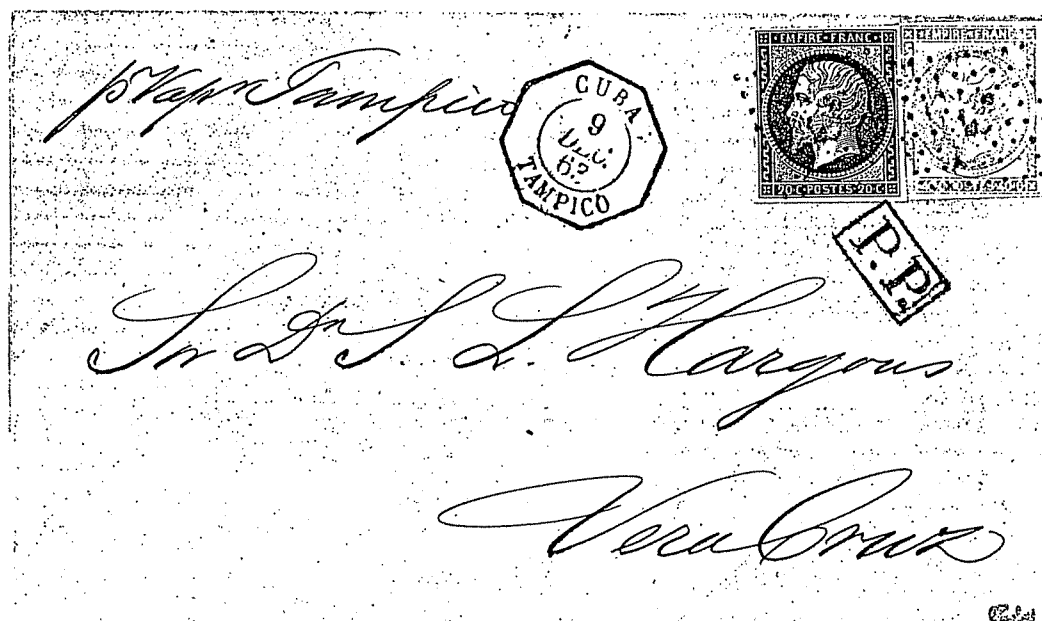 pr Vapor Tampico
CUBA
9
Dec.
62
TAMPICO
EMPIRE FRANC
20·C·POSTES·20·C
EMPIRE FRANC
P.P.
Sr Dn S. L. Hargous
Vera Cruz